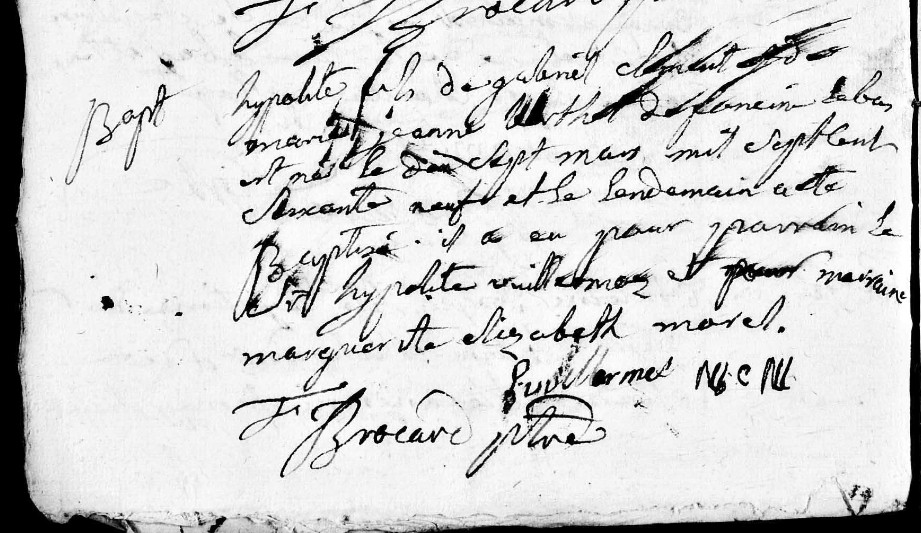 Brocard
Bapt
hypolite fils de gabriel Clement et de
marie jeanne Berthet de foncine le bas
est né le dix sept mars mil sept cent
soixante neuf et le lendemain a été
Baptisé. il a eu pour parrain le
Sr hypolite vuillermoz et pour marraine
marguerite elizabeth morel.
vuillermet
F Brocard ptre